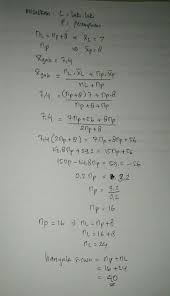 misalkan : L = laki-laki
P = perempuan
nL = np+8 ⇒ x̄L = 7
np ⇒ x̄p = 8
x̄gab = 7,4
x̄gab = (nL·x̄L + np·x̄p) / (nL + np)
7,4 = ((np+8)7 + np·8) / (np+8+np)
7,4 = (7np+56+8np) / (2np+8)
7,4(2np+8) = 7np+8np+56
14,8np+59,2 = 15np+56
15np-14,8np = 59,2-56
0,2np = 3,2
np = 3,2 / 0,2
np = 16
np = 16 ⇒ nL = np+8
= 16+8
nL = 24
banyak siswa = np+nL
= 16+24
= 40